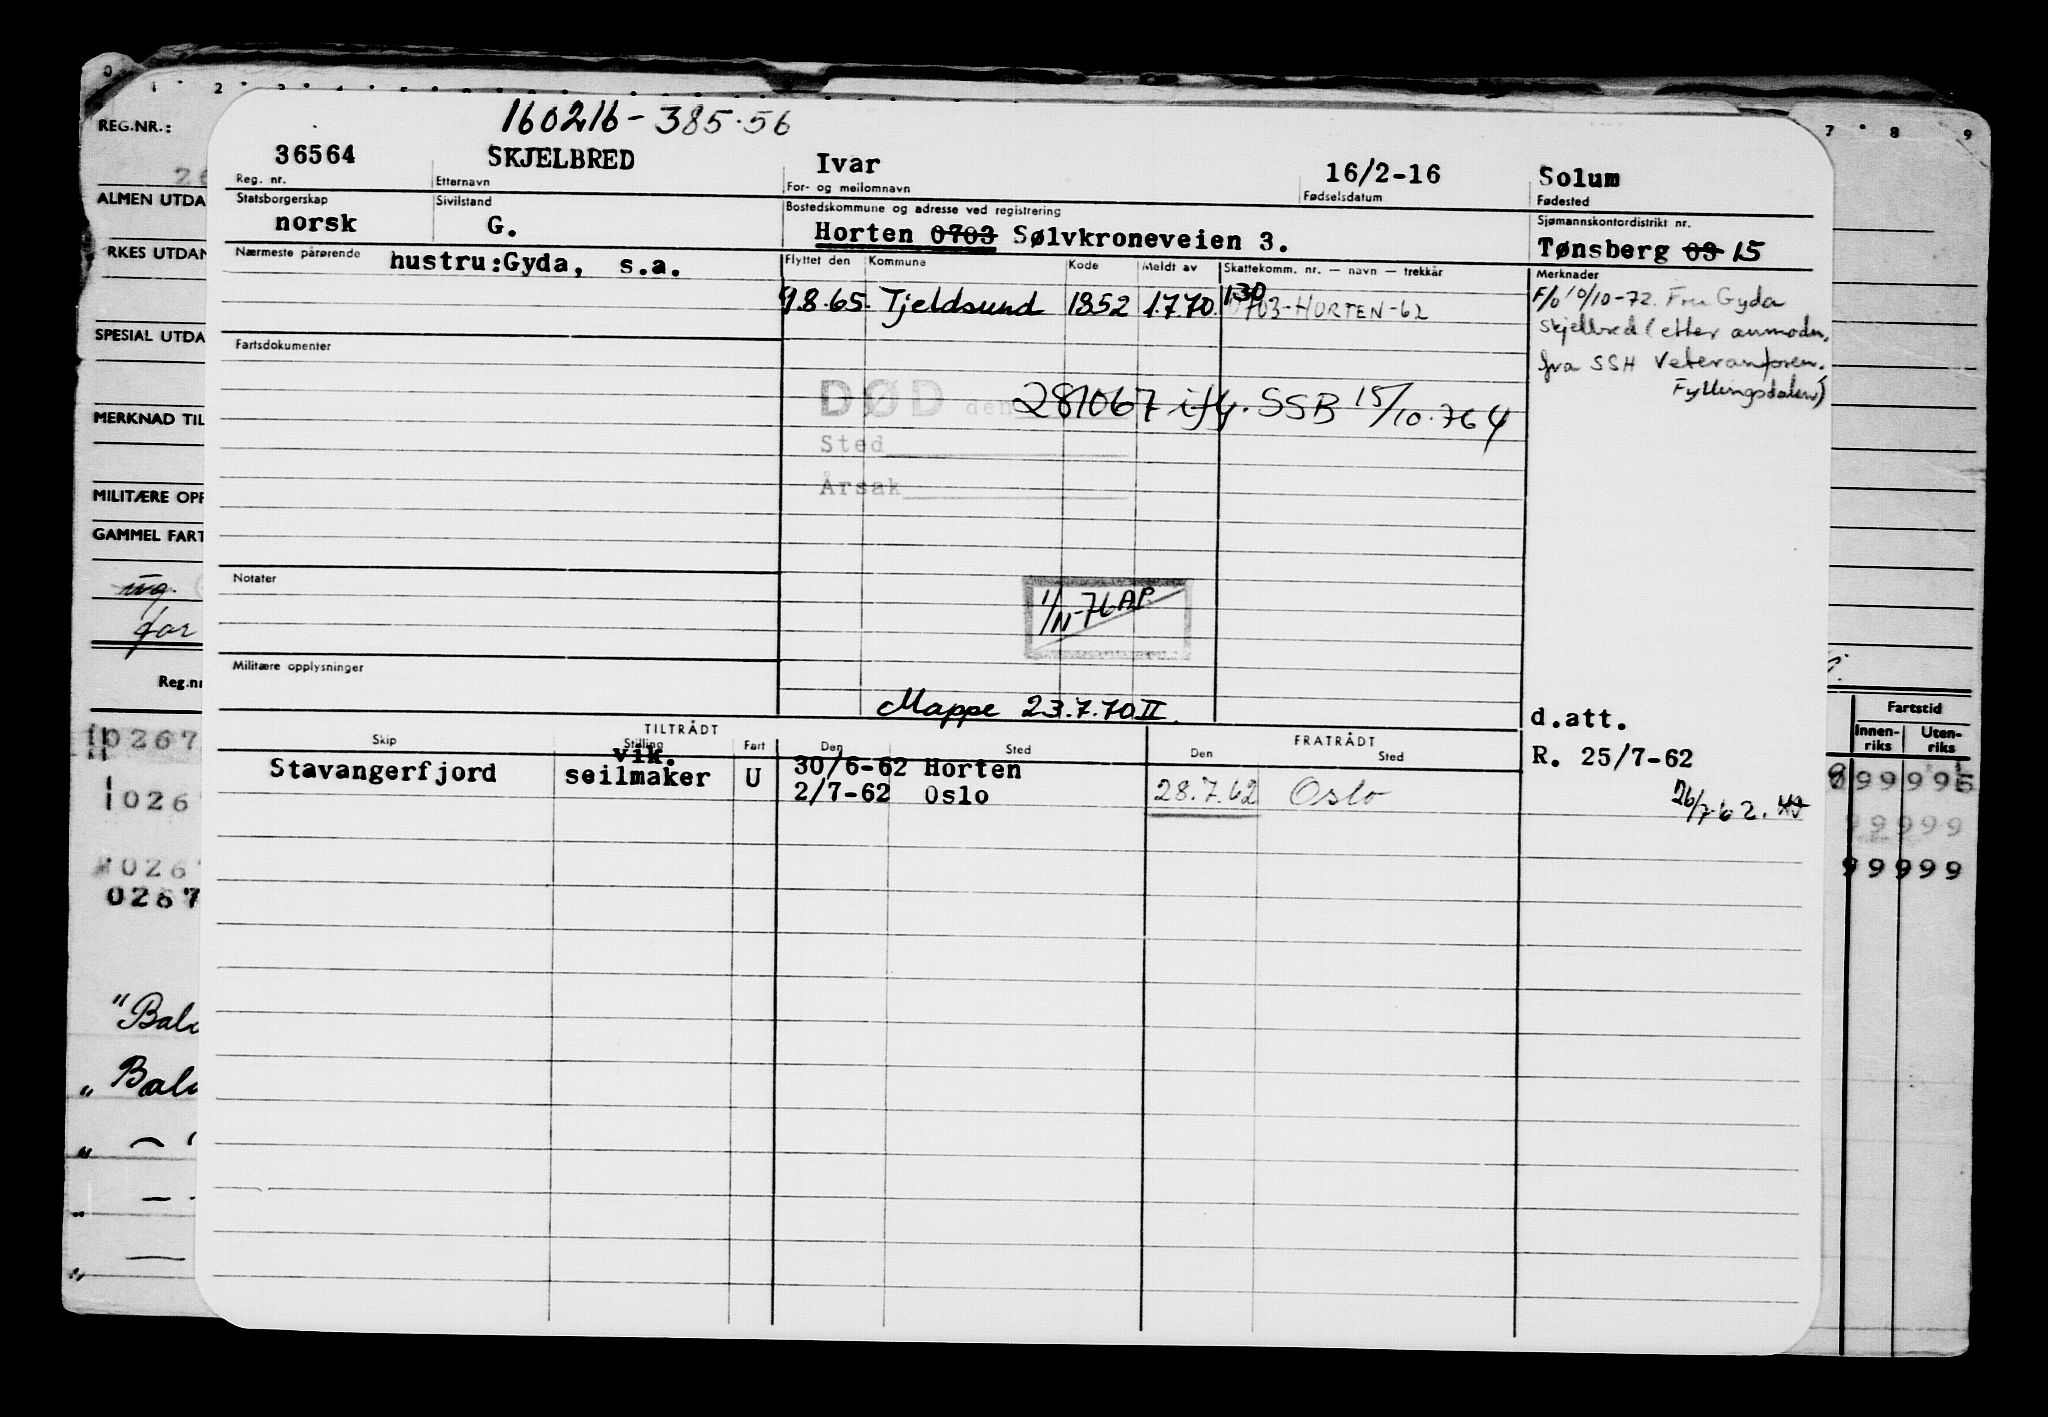 160216-385.56
REG.NR.:
36564 SKJELBRED Ivar 16/2-16 Solum
Reg. nr. Etternavn For- og mellomnavn Fødselsdatum Fødested
ALMEN UTDA
Statsborgerskap Sivilstand Bostedskommune og adresse ved registrering Sjømannskontordistrikt nr.
norsk G. Horten 0703 Sølvkroneveien 3. Tønsberg 09 15
RKES UTDAN
Nærmeste pårørende hustru:Gyda, s.a. Flyttet den Kommune Kode Meldt av Skattekomm. nr. — navn — trekkår Merknader
9.8.65. Tjeldsund 1852 1.7.70. 130 0703-HORTEN-62 F/o 10/10-72. Fru Gyda
Skjelbred (etter anmodn.
SPESIAL UTDA
Fartsdokumenter
fra SSH Veteranforen.
Fyllingsdalen)
DØD den 281067 iflg. SSB 15/10.76
MERKNAD TIL
Sted
Årsak
MILITÆRE OPP
GAMMEL FART
Notater
1/11-76 AP
for
Militære opplysninger
Reg.nr
Mappe 23.7.70 II.
d.att.
Fartstid
TILTRÅDT FRATRÅDT
Innen-riks Uten-riks
Skip Stilling Fart Den Sted Den Sted
vik.
Stavangerfjord seilmaker U 30/6-62 Horten R. 25/7-62
2/7-62 Oslo 28.7.62 Oslo 26/7-62.
0267
99999
0267
99999
0267
99999
0267
"Bal
" Bal